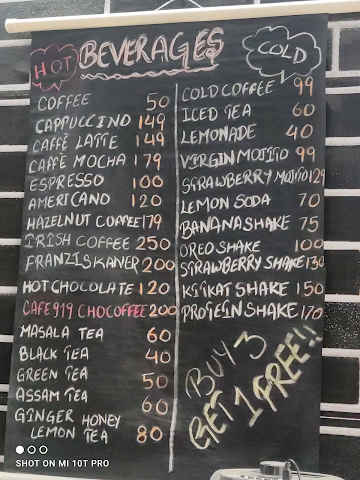 BEVERAGES
HOT
COFFEE 50
CAPPUCCINO 149
CAFFÈ LATTE 149
CAFFÈ MOCHA 179
ESPRESSO 100
AMERICANO 120
HAZELNUT COFFEE 179
IRISH COFFEE 250
FRANZISKANER 200
HOT CHOCOLATE 120
CAFE 919 CHOCOFFEE 200
MASALA TEA 60
BLACK TEA 40
GREEN TEA 50
ASSAM TEA 60
GINGER HONEY
LEMON TEA 80
COLD
COLD COFFEE 99
ICED TEA 60
LEMONADE 40
VIRGIN MOJITO 99
STRAWBERRY MOJITO 129
LEMON SODA 70
BANANA SHAKE 75
OREO SHAKE 100
STRAWBERRY SHAKE 130
KITKAT SHAKE 150
PROTEIN SHAKE 170
BUY 3
GET 1 FREE!!
SHOT ON MI 10T PRO